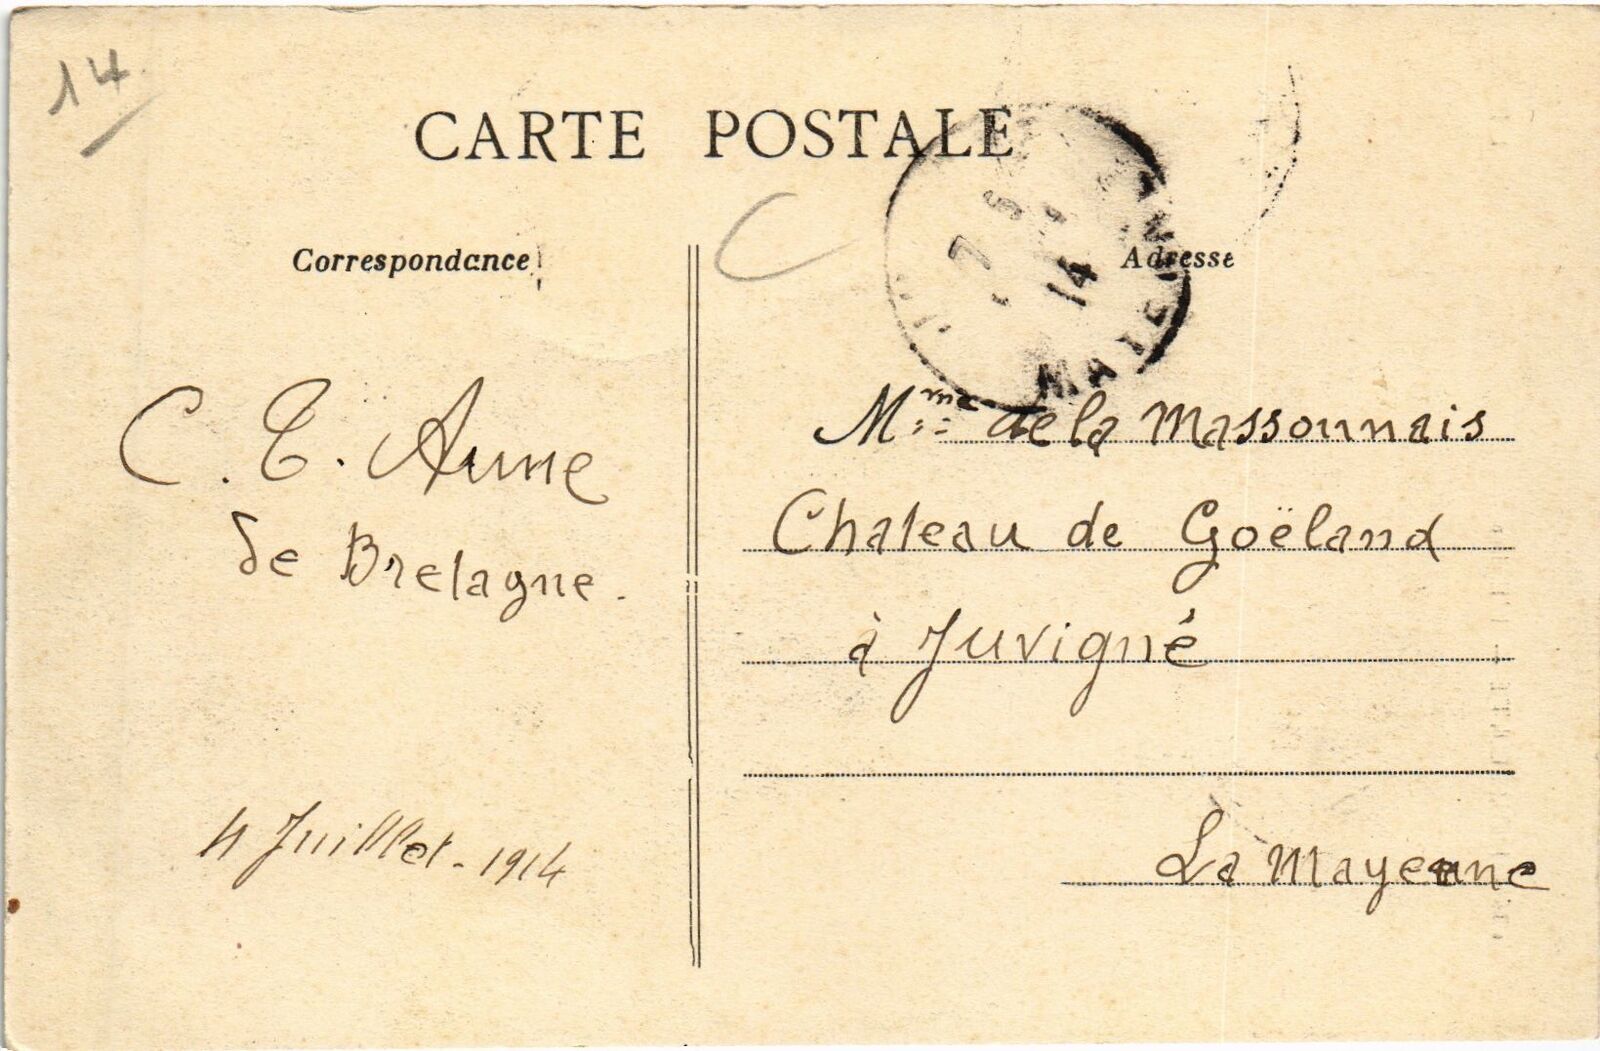 14
CARTE POSTALE
Correspondance
Adresse
7
14
MAYENNE
C. E. Anne
de Bretagne.
4 Juillet - 1914
Mme de la Massonnais
Chateau de Goëland
à Juvigné
La Mayenne